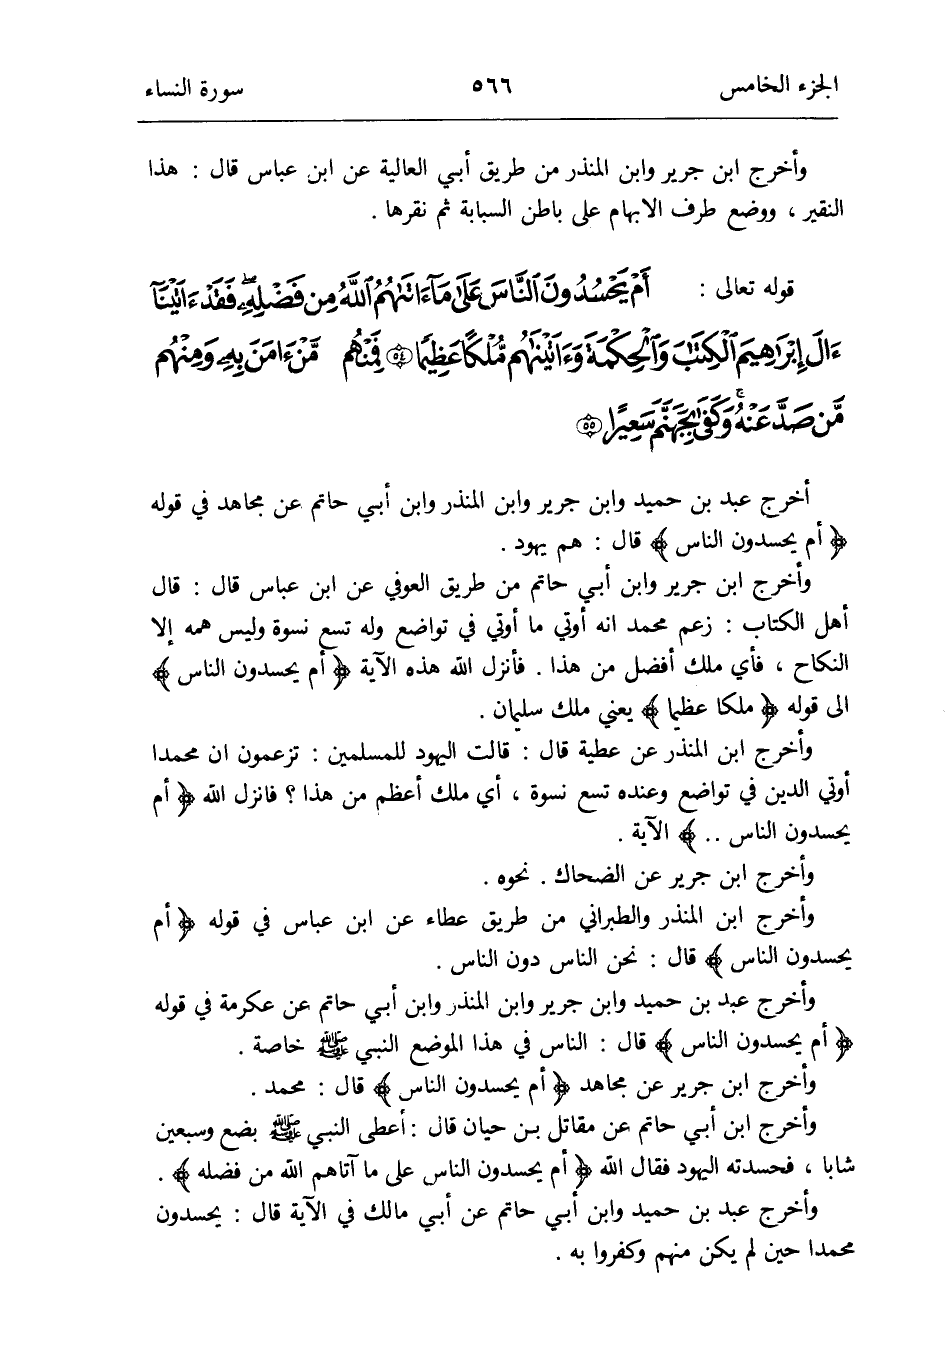 الجزء الخامس ٥٦٦ سورة النساء
وأخرج ابن جرير وابن المنذر من طريق أبي العالية عن ابن عباس قال : هذا
النقير ، ووضع طرف الابهام على باطن السبابة ثم نقرها .
قوله تعالى : أَمْ يَحْسُدُونَ ٱلنَّاسَ عَلَىٰ مَآ ءَاتَىٰهُمُ ٱللَّهُ مِن فَضْلِهِۦۖ فَقَدْ ءَاتَيْنَآ
ءَالَ إِبْرَٰهِيمَ ٱلْكِتَٰبَ وَٱلْحِكْمَةَ وَءَاتَيْنَٰهُم مُّلْكًا عَظِيمًا ﴿٥٤﴾ فَمِنْهُم مَّنْ ءَامَنَ بِهِۦ وَمِنْهُم
مَّن صَدَّ عَنْهُۚ وَكَفَىٰ بِجَهَنَّمَ سَعِيرًا ﴿٥٥﴾
أخرج عبد بن حميد وابن جرير وابن المنذر وابن أبي حاتم عن مجاهد في قوله
﴿ أم يحسدون الناس ﴾ قال : هم يهود .
وأخرج ابن جرير وابن أبي حاتم من طريق العوفي عن ابن عباس قال : قال
أهل الكتاب : زعم محمد انه أوتي ما أوتي في تواضع وله تسع نسوة وليس همه إلا
النكاح ، فأي ملك أفضل من هذا . فأنزل الله هذه الآية ﴿ أم يحسدون الناس ﴾
الى قوله ﴿ ملكا عظيما ﴾ يعني ملك سليمان .
وأخرج ابن المنذر عن عطية قال : قالت اليهود للمسلمين : تزعمون ان محمدا
أوتي الدين في تواضع وعنده تسع نسوة ، أي ملك أعظم من هذا ؟ فانزل الله ﴿ أم
يحسدون الناس .. ﴾ الآية .
وأخرج ابن جرير عن الضحاك . نحوه .
وأخرج ابن المنذر والطبراني من طريق عطاء عن ابن عباس في قوله ﴿ أم
يحسدون الناس ﴾ قال : نحن الناس دون الناس .
وأخرج عبد بن حميد وابن جرير وابن المنذر وابن أبي حاتم عن عكرمة في قوله
﴿ أم يحسدون الناس ﴾ قال : الناس في هذا الموضع النبي ﷺ خاصة .
وأخرج ابن جرير عن مجاهد ﴿ أم يحسدون الناس ﴾ قال : محمد .
وأخرج ابن أبي حاتم عن مقاتل بن حيان قال : أعطى النبي ﷺ بضع وسبعين
شابا ، فحسدته اليهود فقال الله ﴿ أم يحسدون الناس على ما آتاهم الله من فضله ﴾ .
وأخرج عبد بن حميد وابن أبي حاتم عن أبي مالك في الآية قال : يحسدون
محمدا حين لم يكن منهم وكفروا به .